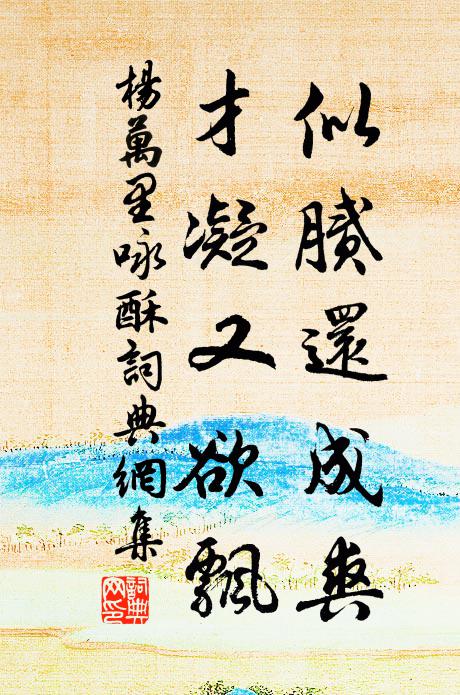 似膩還成爽
才凝又欲飄
楊萬里咏酥詞典網集
詞典
网印